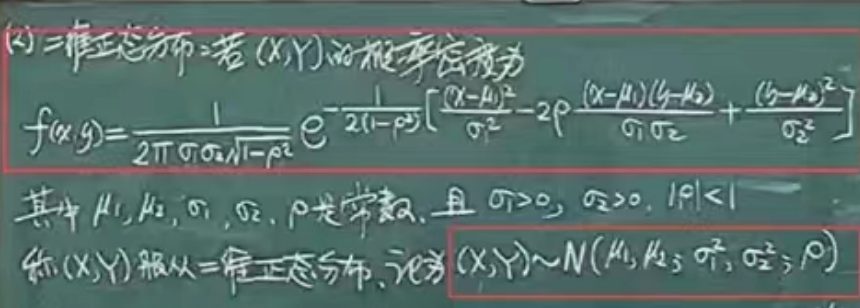 (2) 二维正态分布：若 (X,Y) 的概率密度为
f(x,y)=\frac{1}{2π σ₁σ₂\sqrt{1-ρ²}} e^{-\frac{1}{2(1-ρ²)}[\frac{(x-μ₁)²}{σ₁²}-2ρ\frac{(x-μ₁)(y-μ₂)}{σ₁σ₂}+\frac{(y-μ₂)²}{σ₂²}]}
其中 μ₁, μ₂, σ₁, σ₂, ρ是常数、且 σ₁>0, σ₂>0, |ρ|<1
称(X,Y)服从二维正态分布、记为 (X,Y)~N(μ₁, μ₂; σ₁², σ₂²; ρ)